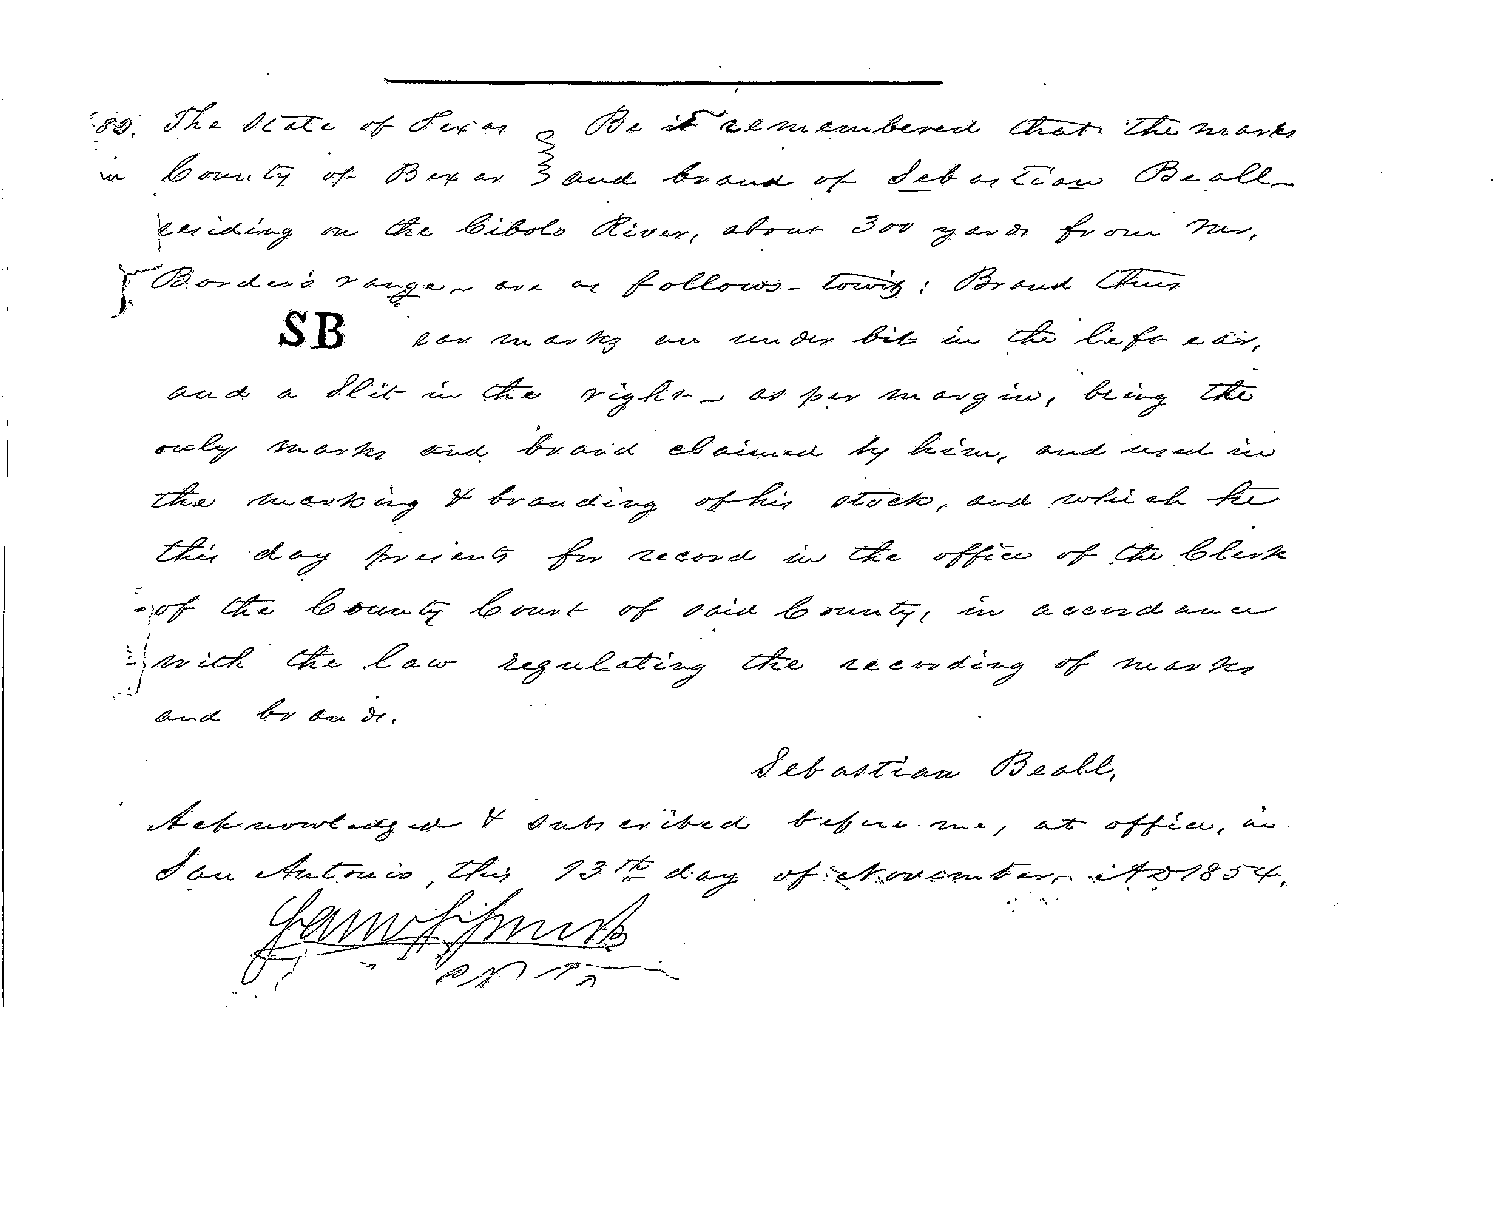 The State of Texas Be it remembered that the marks
County of Bexar and brand of Sebastian Beall
residing on the Cibolo River, about 300 yards from Mr.
Border's range - are as follows - towit: Brand thus
SB ear marks an under bit in the left ear,
and a slit in the right - as per margin, being the
only marks and brand claimed by him, and used in
the marking & branding of his stock, and which he
this day presents for record in the office of the Clerk
of the County Court of said County, in accordance
with the law regulating the recording of marks
and brands.
Sebastian Beall,
Acknowledged & subscribed before me, at office, in
San Antonio, this 13th day of November, AD 1854.